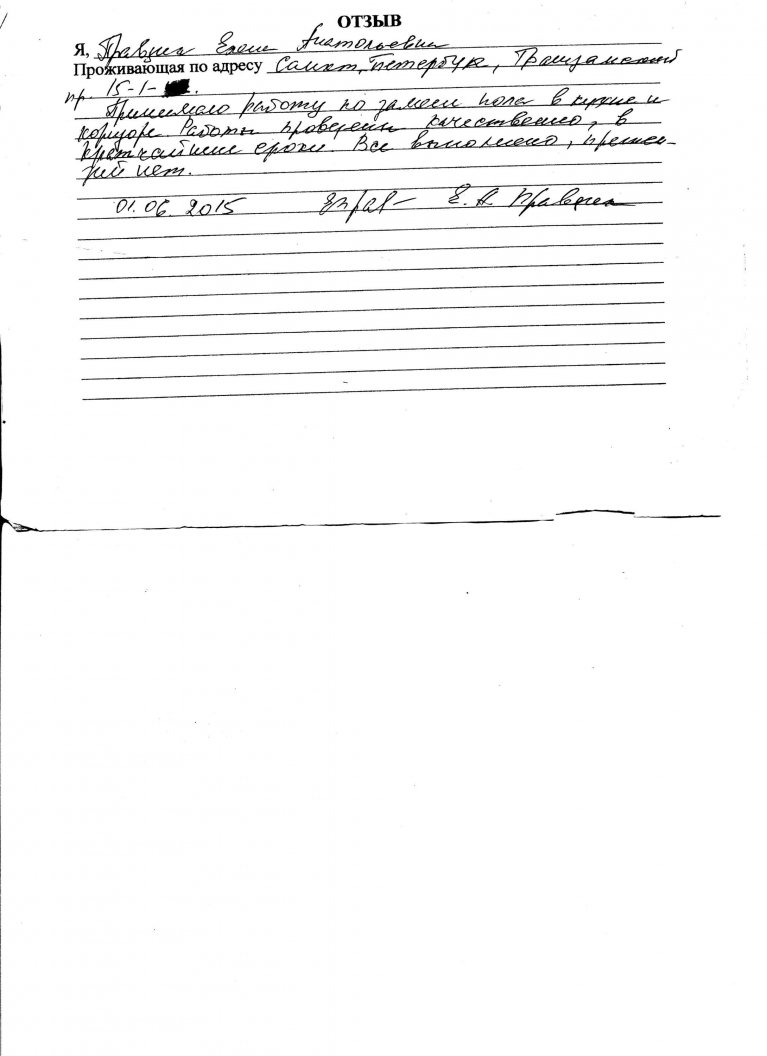 ОТЗЫВ
Я, Правдина Елена Анатольевна
Проживающая по адресу Санкт-Петербург,
пр. 15-1-
Принимала работу по замене пола в кухне и
коридоре. Работы проведены качественно, в
кратчайшие сроки. Все выполнено, претен-
зий нет.
01.06.2015 Е.А. Правдина